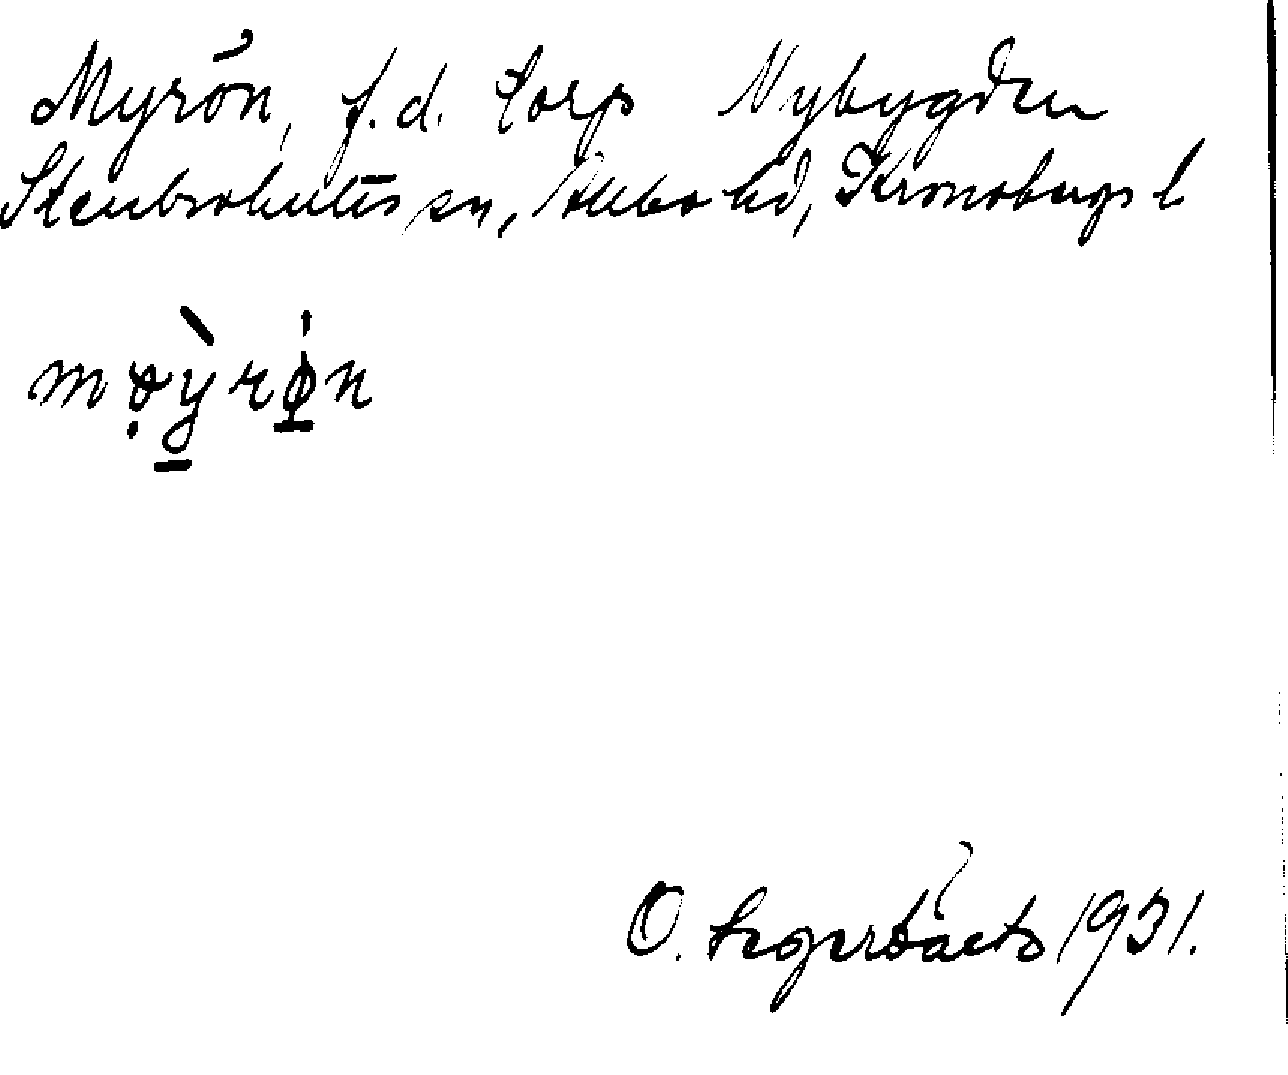 Myrön, f.d. torp Nybygden
Stenbrohults sn, Allbo hd, Kronobergs l
møyrøn
O. Segerbäck 1931.